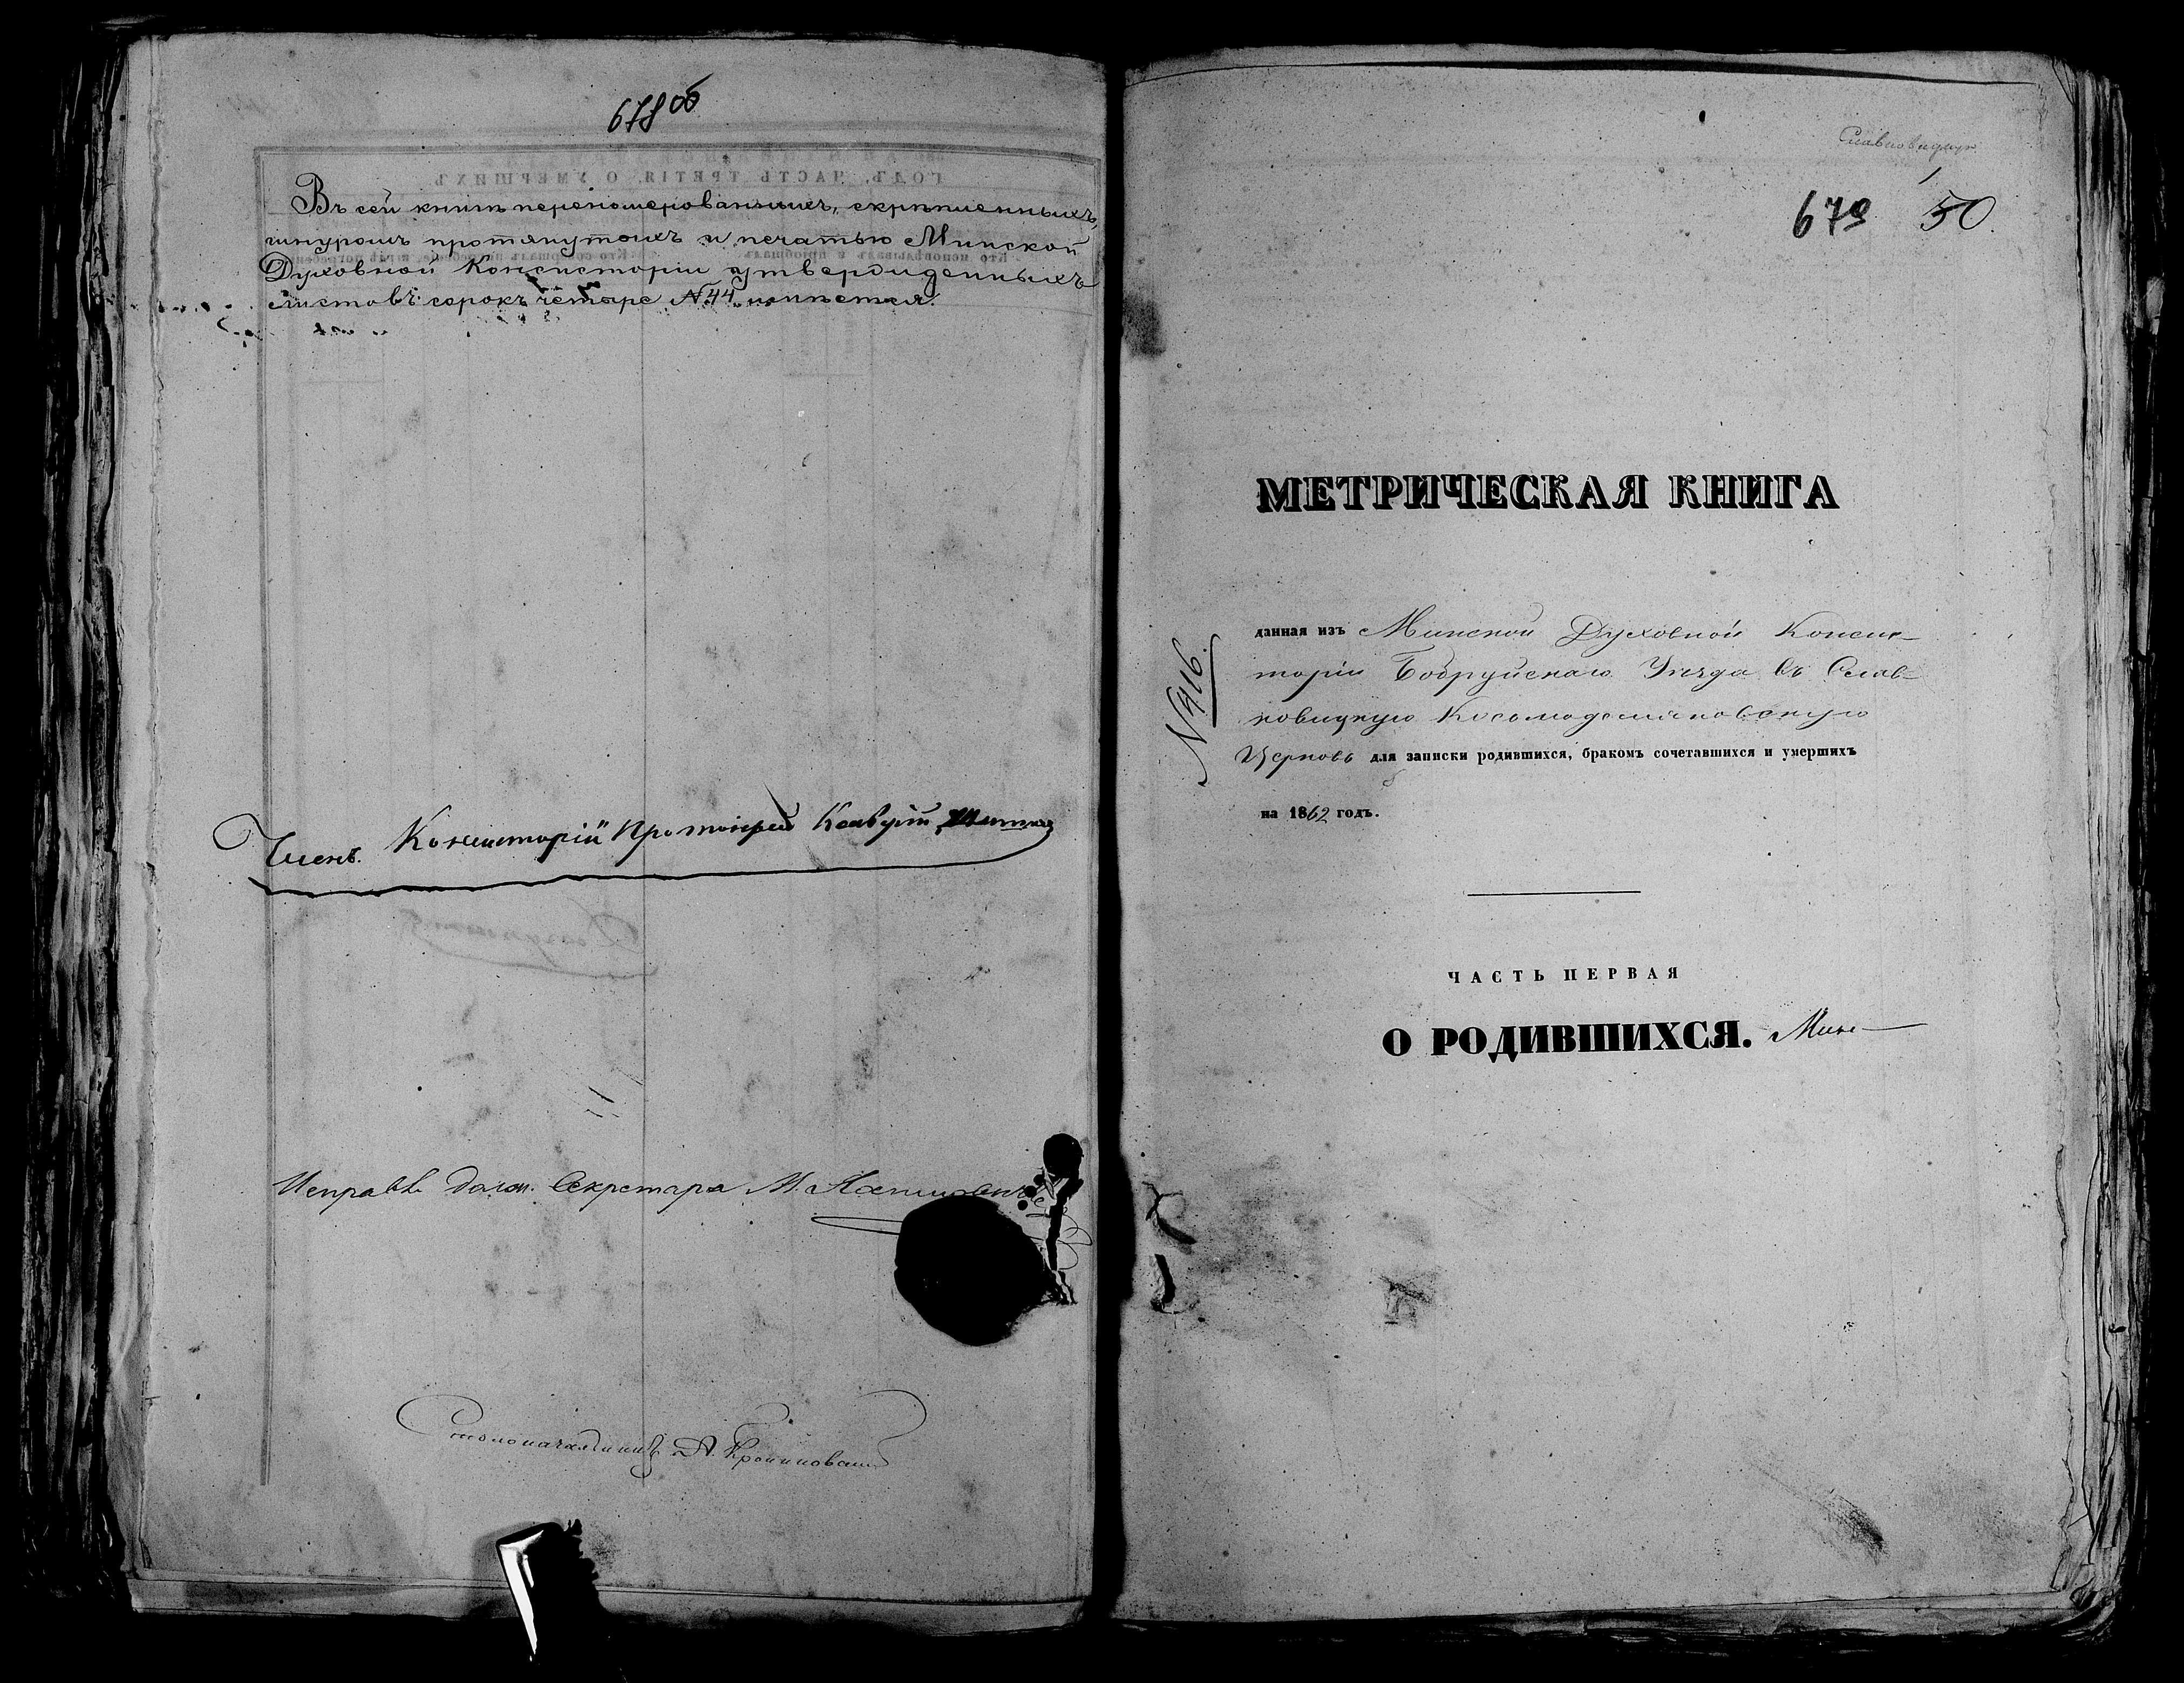 678 об
Въ сей книгѣ перенумерованныхъ, скрѣпленныхъ,
шнуромъ протянутыхъ и печатью Минской
Духовной Консисторіи утвержденныхъ
листовъ сорокъ четыре №44 имѣется.
Членъ Консисторіи Протоіерей
Исправл. долж. Секретаря М.
Столоначальникъ А.
679 50.
МЕТРИЧЕСКАЯ КНИГА
№416.
данная изъ Минской Духовной Консис-
торіи Бобруйскаго Уѣзда въ Слав-
ковицкую Косьмодаміановскую
Церковь для записки родившихся, бракомъ сочетавшихся и умершихъ
на 1862 годъ.
ЧАСТЬ ПЕРВАЯ
О РОДИВШИХСЯ. Мин